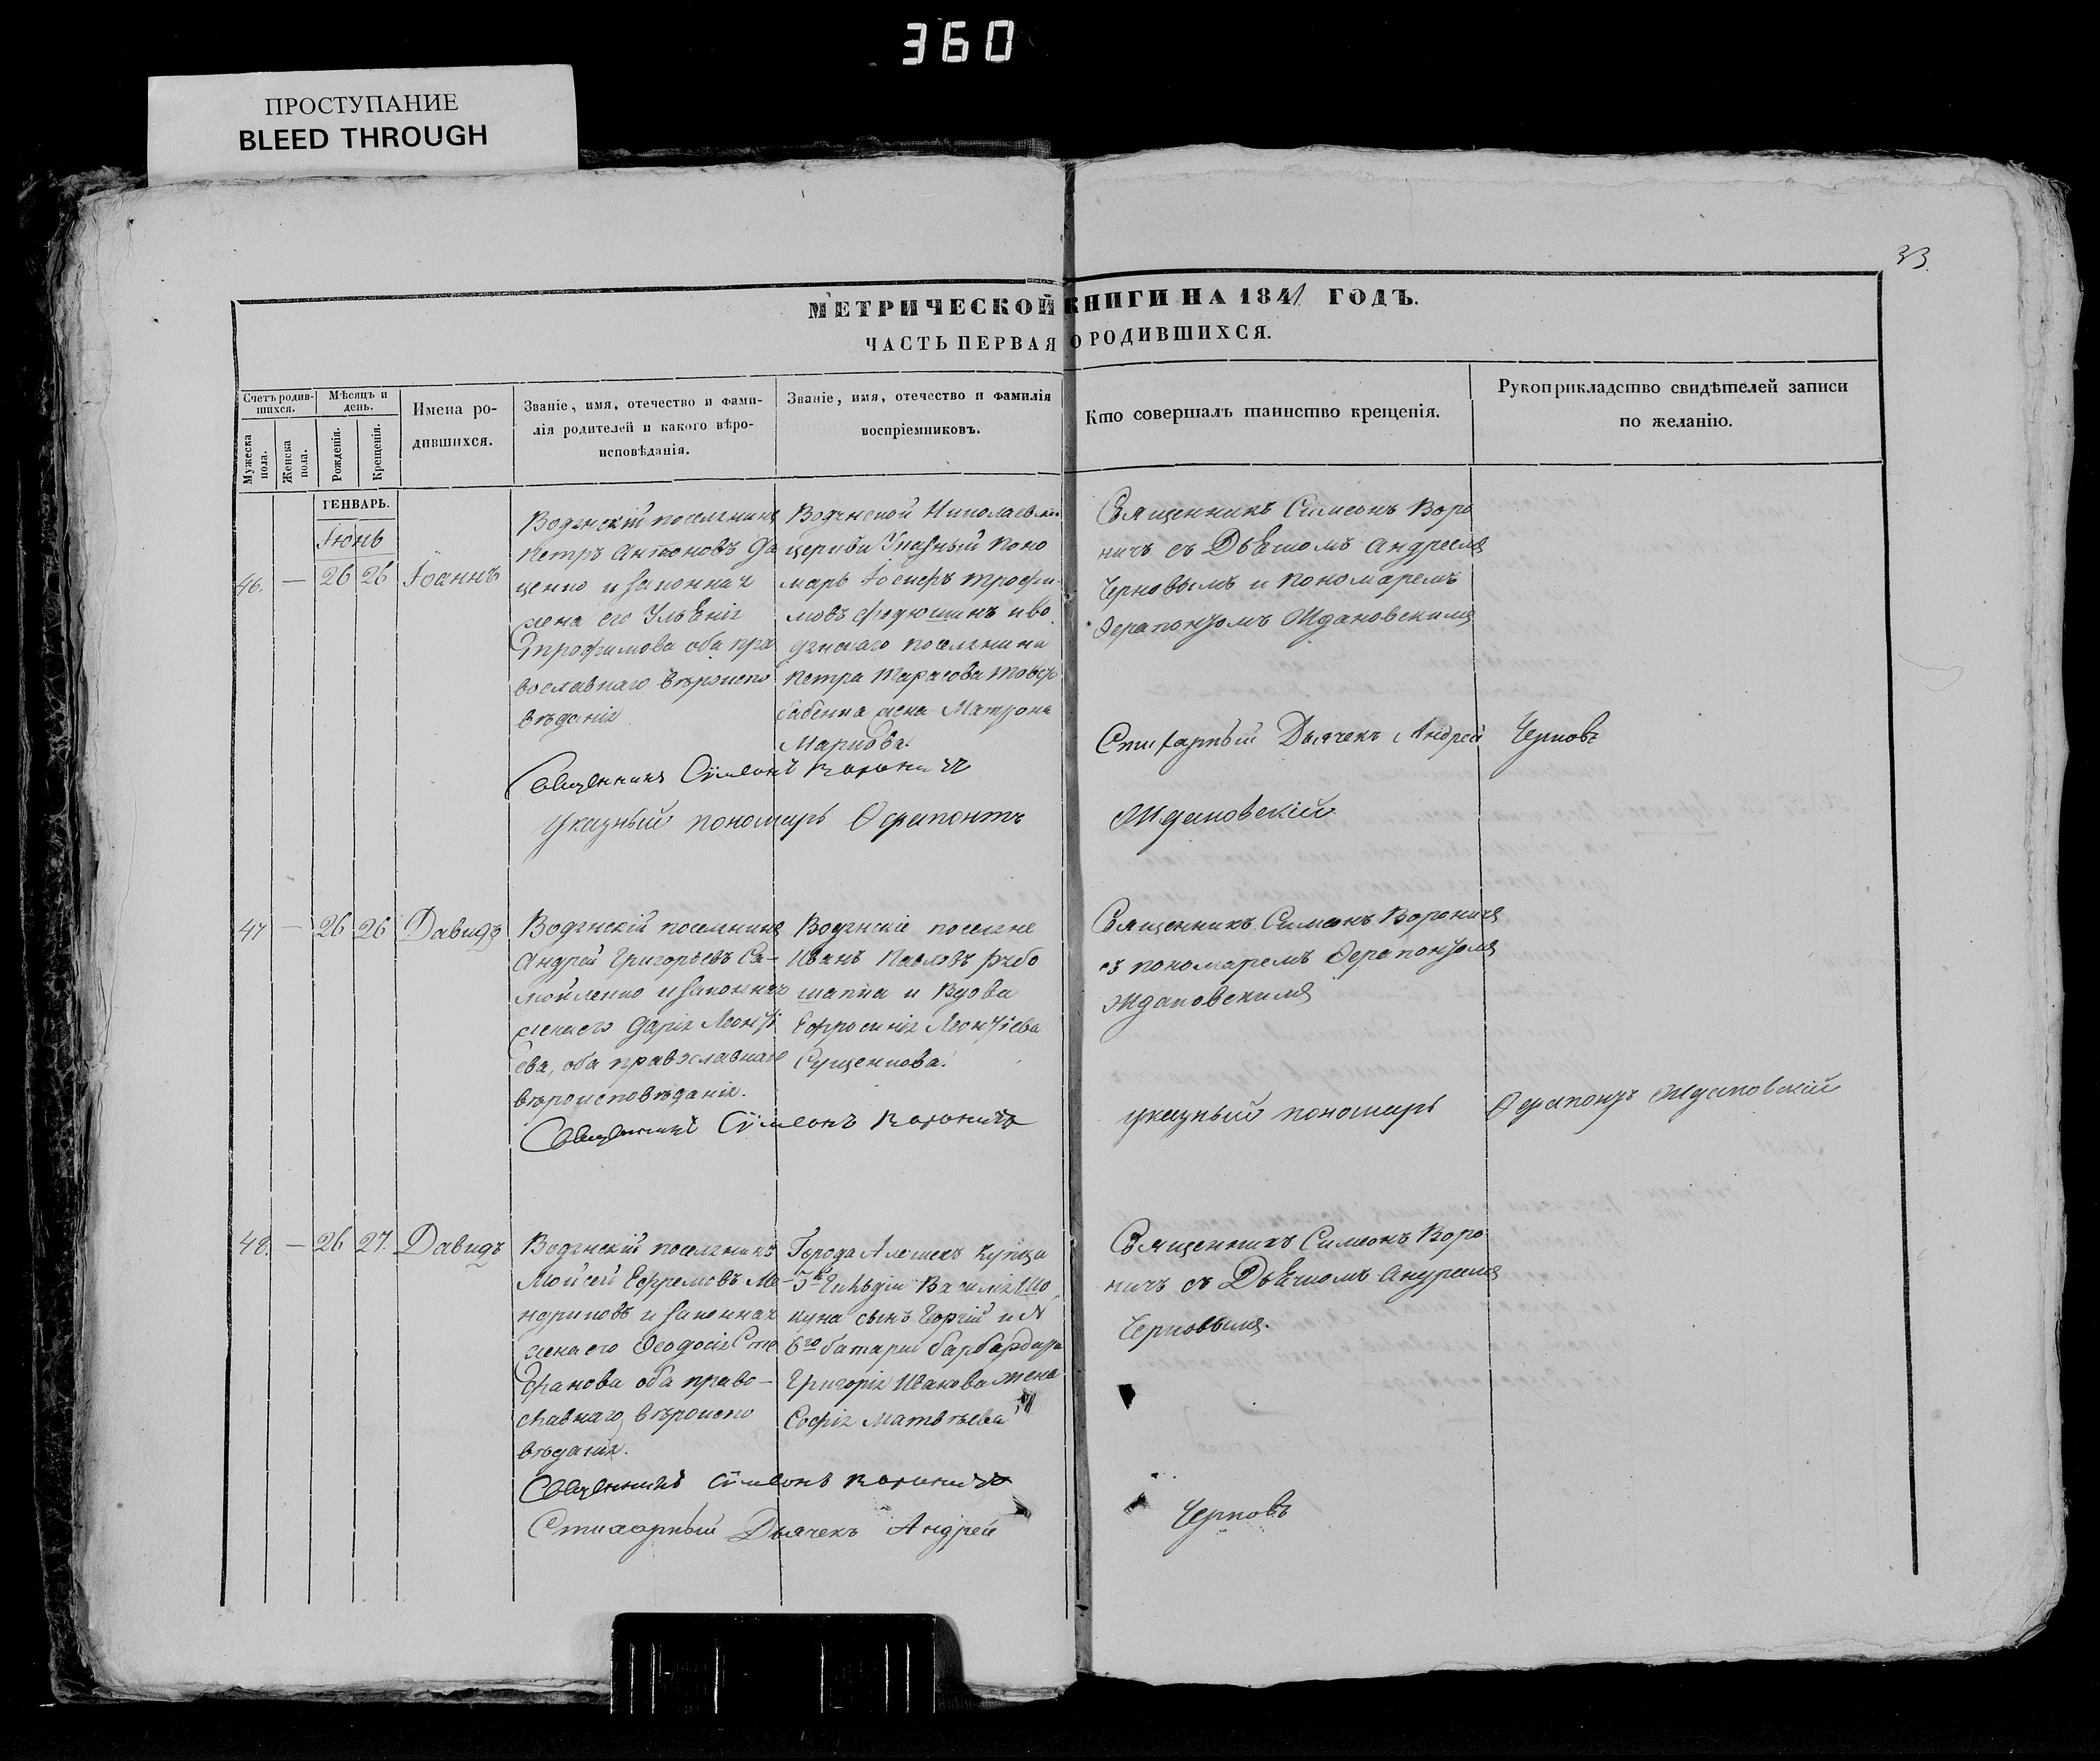 360
ПРОСТУПАНИЕ
BLEED THROUGH
33.
МЕТРИЧЕСКОЙ КНИГИ НА 1841 ГОДЪ.
ЧАСТЬ ПЕРВАЯ О РОДИВШИХСЯ.
Счетъ родив-
шихся.
Мужеска пола.
Женска пола.
Мѣсяцъ и
день.
Рожденія.
Крещенія.
Имена ро-
дившихся.
Званіе, имя, отечество и фами-
лія родителей и какого вѣро-
исповѣданія.
Званіе, имя, отечество и фамилія
воспріемниковъ.
Кто совершалъ таинство крещенія.
Рукоприкладство свидѣтелей записи
по желанію.
ГЕНВАРЬ.
Іюнь
46. — 26 26 Іоаннъ
Водянскій поселянинъ
Петръ Антоновъ
ценко и законная
жена его
Трофимова оба пра
вославнаго вѣроиспо
вѣданія
Водянской Николаевской
церкви Указный поно
марь Іосифъ Трофи-
мовъ Федюшинъ и во
дянскаго поселянина
Петра Тарасова
жена Матрона
Маркова.
Священникъ Симеонъ Воро
ничъ съ Дьячкомъ Андреемъ
Черновымъ и пономаремъ
Ѳерапонтомъ Ждановскимъ
Стихарный Дьячекъ Андрей Черновъ
Священникъ Сімеонъ Вороничъ
указный пономарь Ѳерапонтъ Ждановскій
47 — 26 26 Давидъ
Водянскій поселянинъ
Андрей Григорьевъ Са-
мойленко и законная
жена его Дарія Леонті
ева, оба православнаго
вѣроисповѣданія.
Водянскіе поселяне
Иванъ Павловъ Рябо
шапка и Вдова
Ефросинія Леонтіева
Сущенкова.
Священникъ Симеонъ Вороничъ
съ пономаремъ Ѳерапонтомъ
Ждановскимъ
Священникъ Сімеонъ Вороничъ
указный пономарь Ѳерапонтъ Ждановскій
48. — 26 27. Давидъ
Водянскій поселянинъ
Мойсей Ефремовъ Ме-
ндриковъ и законная
жена его Ѳеодосія Сте
фанова оба право-
славнаго вѣроиспо
вѣданія.
Города Алешекъ купца
3й Гильдіи Василія Шо
куна сынъ Георгій и
6го батареи
Григорія Иванова жена
Софія Матвѣева
Священникъ Симеонъ Воро
ничъ съ Дьячкомъ Андреемъ
Черновымъ.
Священникъ Сімеонъ Вороничъ
Стихарный Дьячекъ Андрей Черновъ